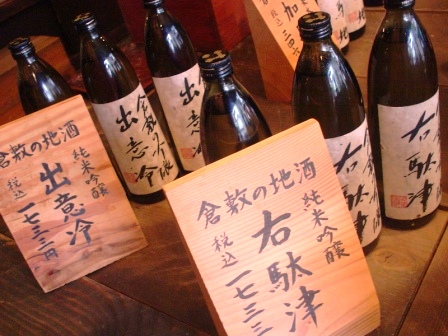 倉敷の地酒
出意冷
純米吟醸
税込
一七三三円
倉敷の地酒
右駄津
純米吟醸
税込
一七三三
出意令
出意
右駄津
右駄津